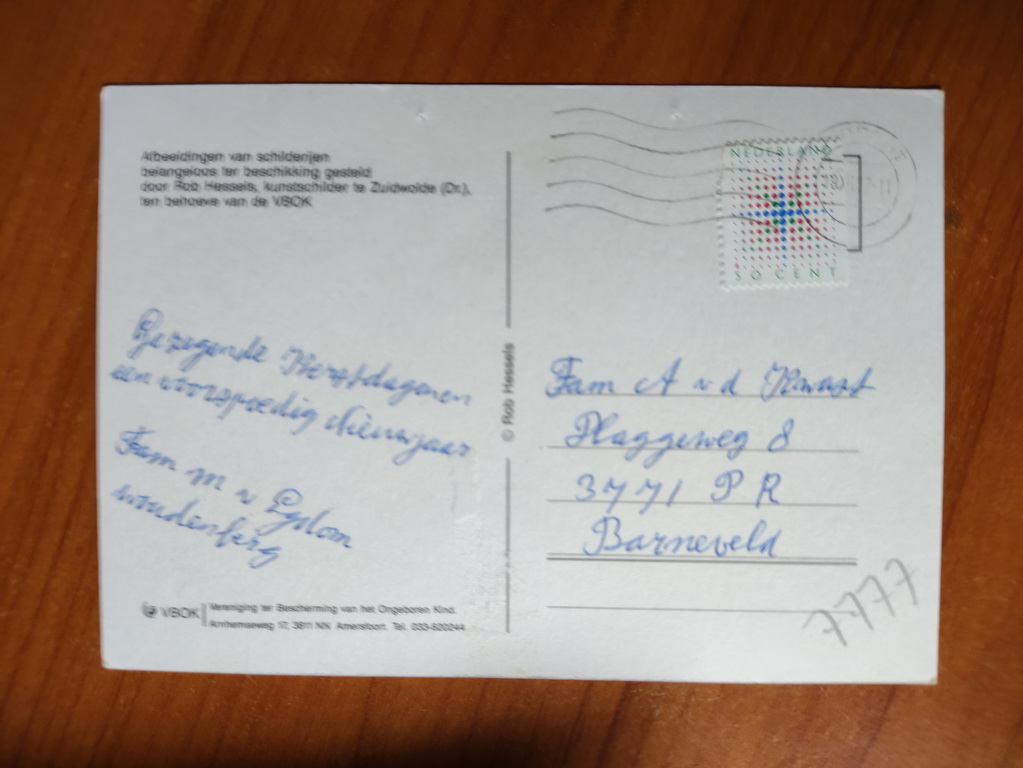 Afbeeldingen van schilderijen
belangeloos ter beschikking gesteld
door Rob Hessels, kunstschilder te Zuidwolde (Dr.),
ten behoeve van de VBOK
NEDERLAND
50 CENT
Gezegende Kerstdagen en
een voorspoedig Nieuwjaar
Fam m v Egdom
woudenberg
© Rob Hessels
Fam A v d Kwast
Plaggeweg 8
3771 P R
Barneveld
7777
VBOK
Vereniging ter Bescherming van het Ongeboren Kind.
Arnhemseweg 17, 3811 NN Amersfoort. Tel. 033-620244